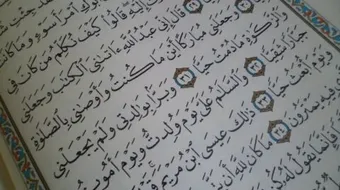 امْرَأَ سَوْءٍ وَمَا كَانَتْ
إِلَيْهِ قَالُوا۟ كَيْفَ نُكَلِّمُ مَن كَانَ فِى
قَالَ إِنِّى عَبْدُ ٱللَّهِ ءَاتَىٰنِىَ ٱلْكِتَٰبَ وَجَعَلَنِى
وَجَعَلَنِى مُبَارَكًا أَيْنَ مَا كُنتُ وَأَوْصَٰنِى بِٱلصَّلَوٰةِ
وَٱلزَّكَوٰةِ مَا دُمْتُ حَيًّا ٣١ وَبَرًّۢا بِوَٰلِدَتِى وَلَمْ يَجْعَلْنِى
جَبَّارًا شَقِيًّا ٣٢ وَٱلسَّلَٰمُ عَلَىَّ يَوْمَ وُلِدتُّ وَيَوْمَ أَمُوتُ
وَيَوْمَ أُبْعَثُ حَيًّا ٣٣ ذَٰلِكَ عِيسَى ٱبْنُ مَرْيَمَ
فِيهِ يَمْتَرُونَ ٣٤ مَا كَانَ لِلَّهِ أَن
فَإِنَّمَا يَقُولُ لَهُۥ كُن